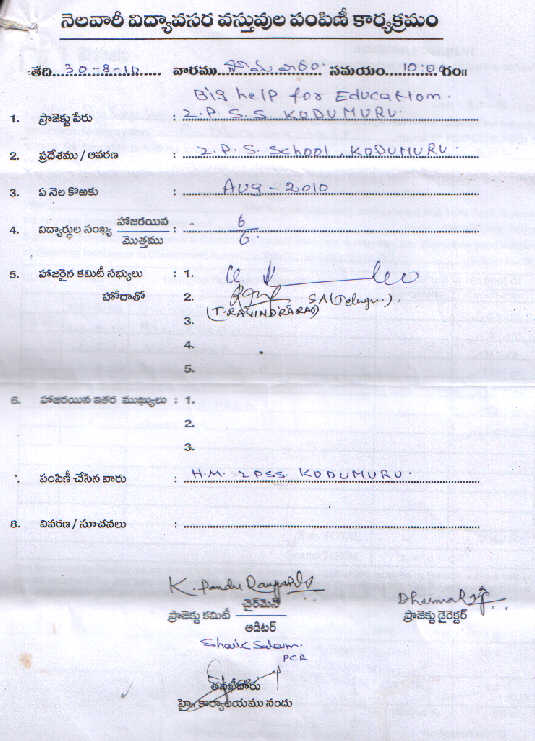 నెలవారీ విద్యావసర వస్తువుల పంపిణీ కార్యక్రమం
తేది 30-8-10 వారము సోమవారం సమయం 10:00 గం॥
Big help for Education.
1. ప్రాజెక్టు పేరు : Z.P.S.S KODUMURU.
2. ప్రదేశము / ఆవరణ : Z.P.S. School, KODUMURU.
3. ఏ నెల కొఱకు : AUG - 2010
4. విద్యార్థుల సంఖ్య హాజరయిన : 6
మొత్తము 6.
5. హాజరైన కమిటీ సభ్యులు : 1.
హోదాతో 2. SA (Telugu).
(T. RAVINDRA RAO)
3.
4.
5.
6. హాజరయిన ఇతర ముఖ్యులు : 1.
2.
3.
పంపిణీ చేసిన వారు : H.M. ZPSS KODUMURU.
8. వివరణ / సూచనలు :
K. Pandu
చైర్మెన్
ప్రాజెక్టు కమిటీ ప్రాజెక్టు డైరెక్టర్
ఆడిటర్
Shaik Salam.
PCR
తనఖీదారు
కార్యాలయము నందు